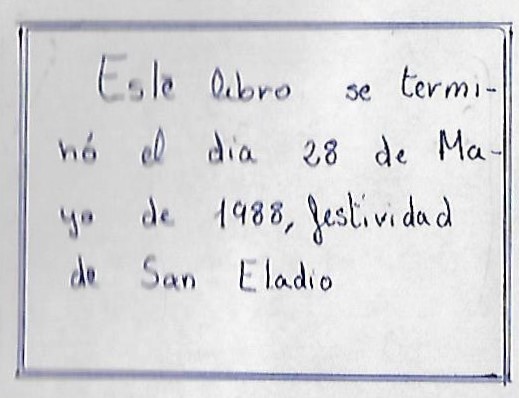 Este libro se termi-
nó el dia 28 de Ma-
yo de 1988, festividad
de San Eladio